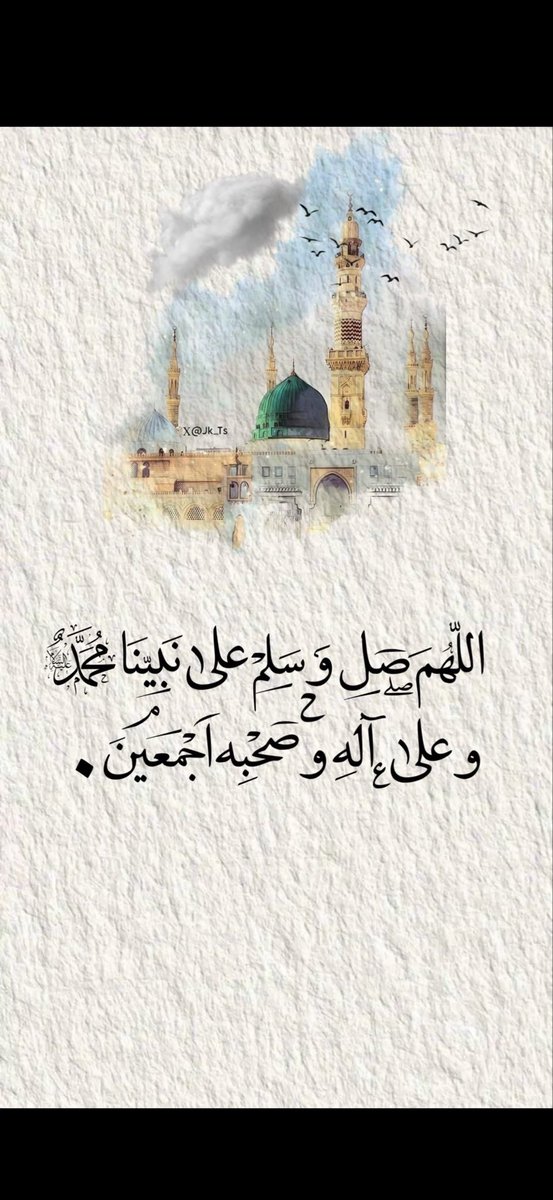 X@Jk_Ts
اللّهُمَ صَلِ وَ سَلِمْ على نَبِيّنَا مُحمَّدٌ ﷺ
و على آلَهِ و صَحْبِه اَجْمَعَينَ .